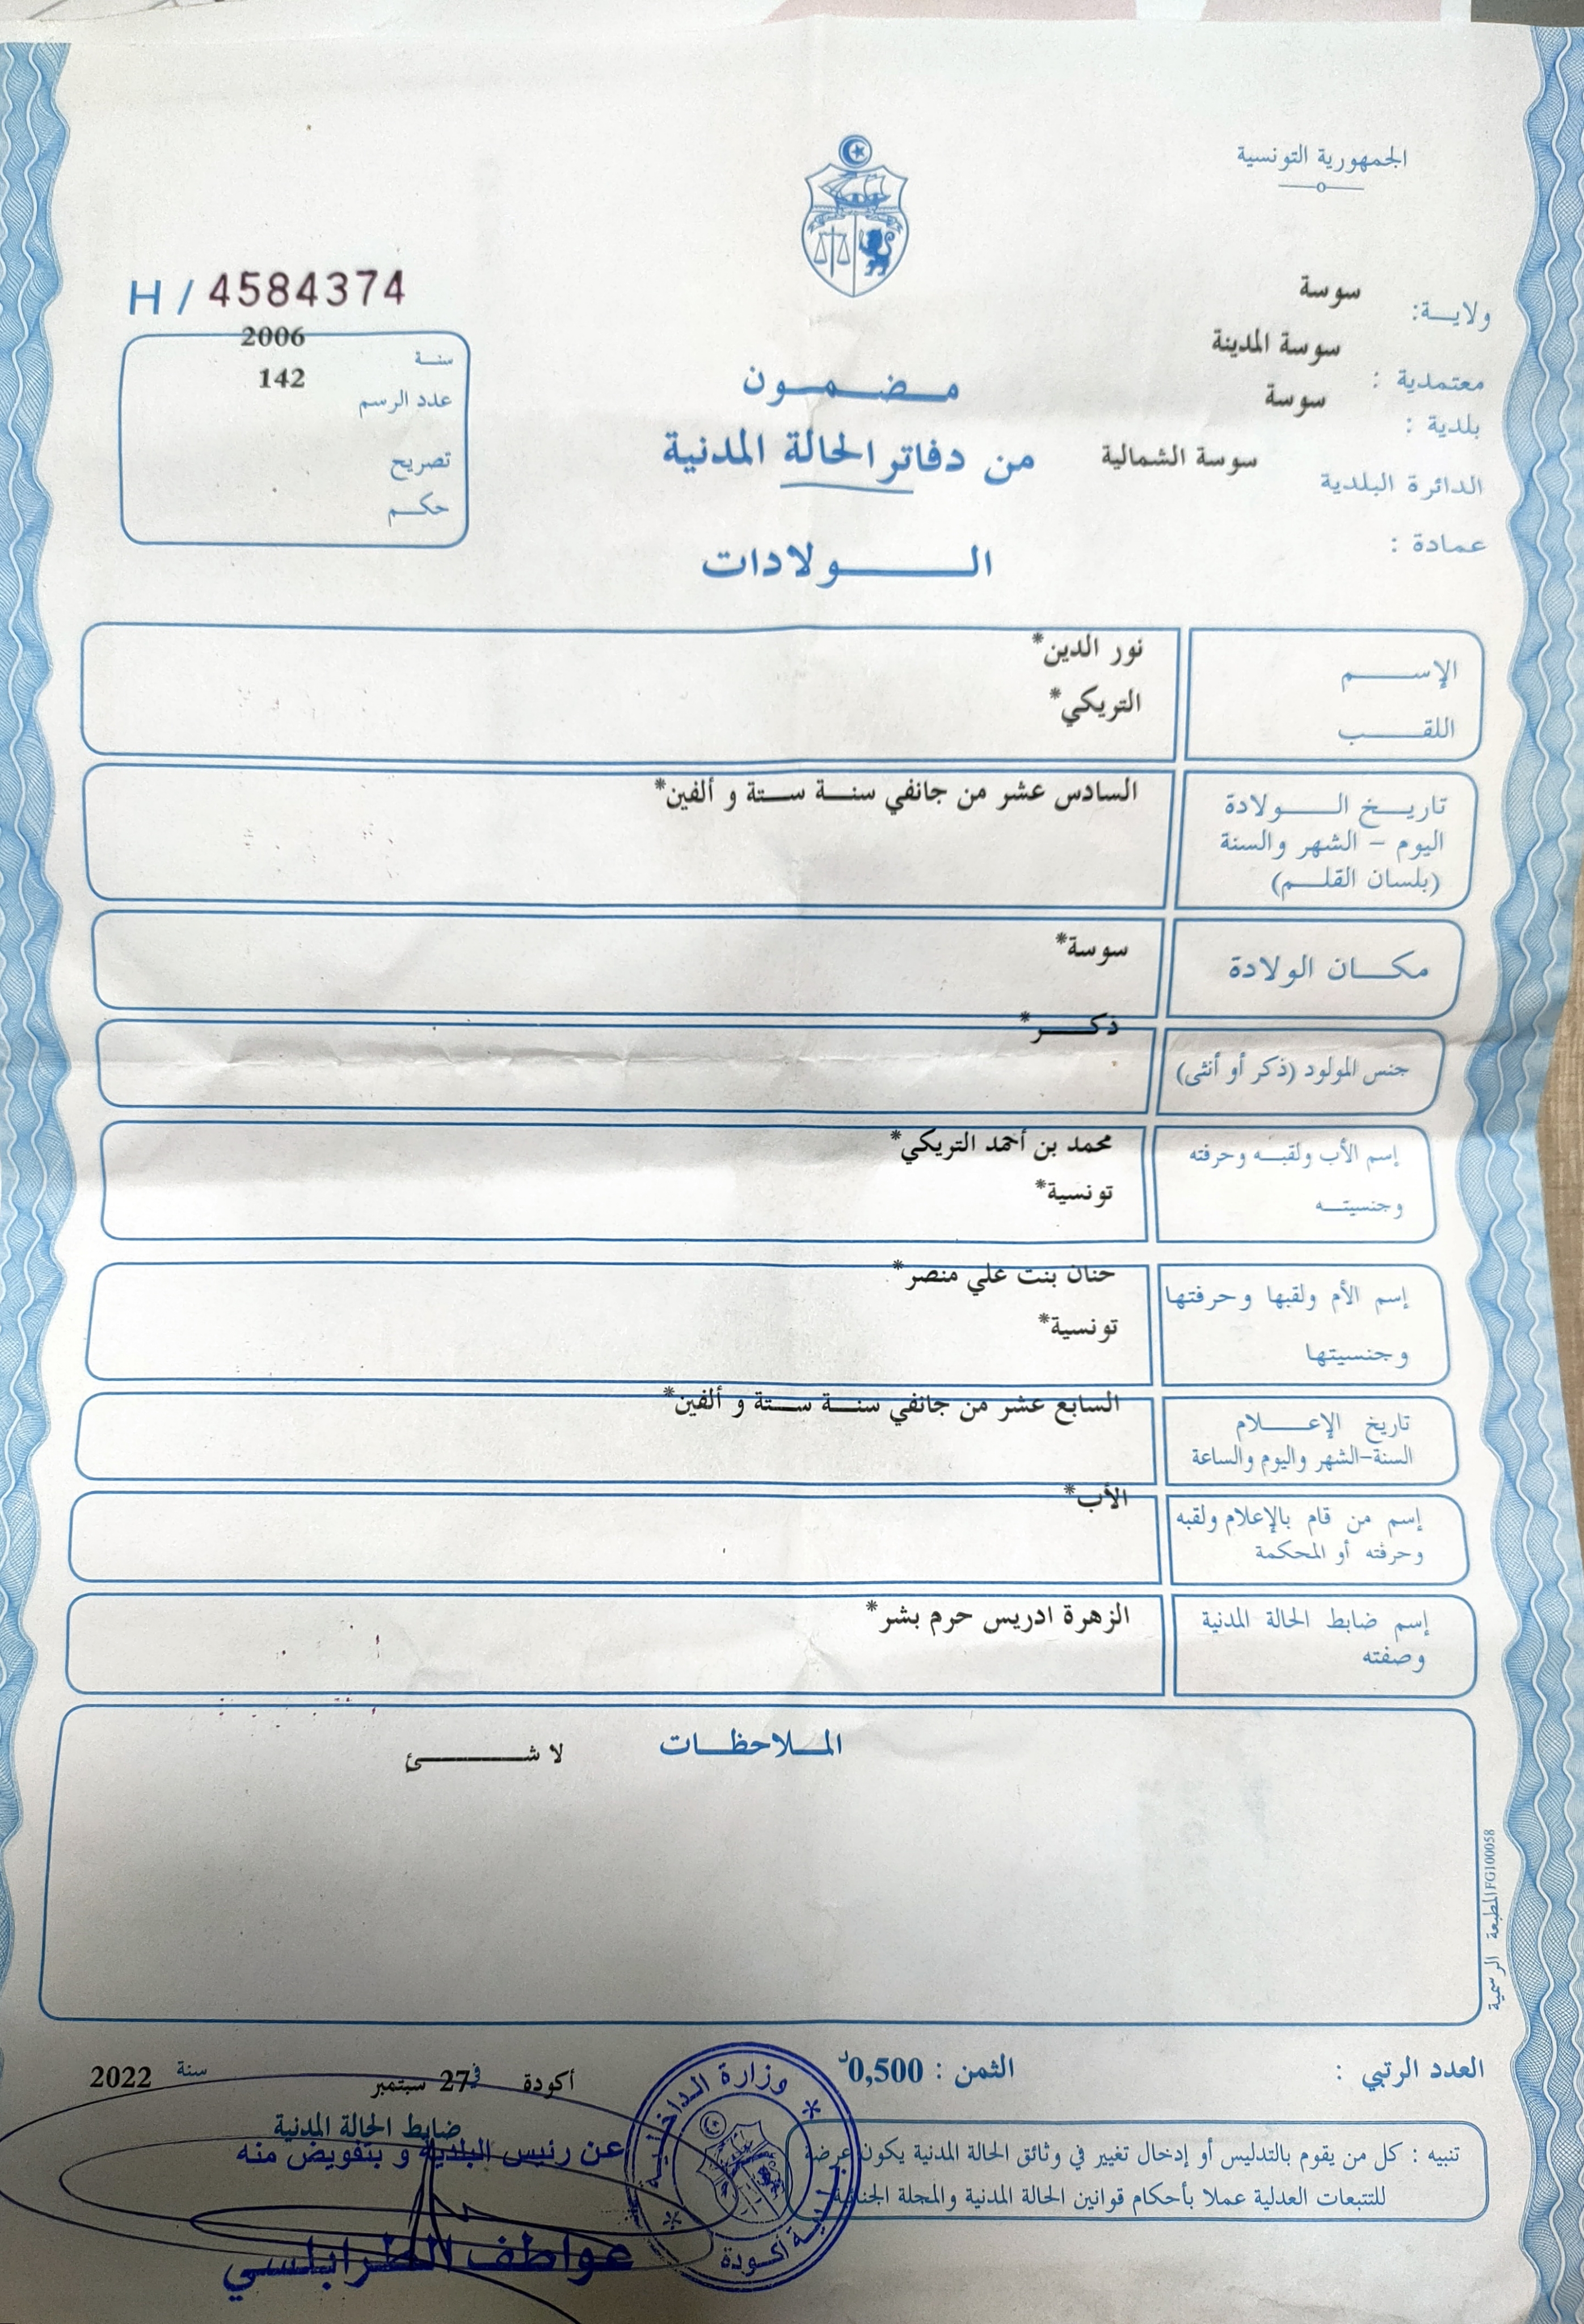 الجمهورية التونسية
ولاية: سوسة
معتمدية : سوسة المدينة
بلدية : سوسة
الدائرة البلدية سوسة الشمالية
عمادة :
H / 4584374
سنة 2006
عدد الرسم 142
تصريح
حكم
مضمون
من دفاتر الحالة المدنية
الولادات
الإسم نور الدين*
اللقب التريكي*
تاريخ الولادة السادس عشر من جانفي سنة ستة و ألفين*
اليوم - الشهر والسنة
(بلسان القلم)
مكان الولادة سوسة*
جنس المولود (ذكر أو أنثى) ذكر*
إسم الأب ولقبه وحرفته محمد بن أحمد التريكي*
وجنسيته تونسية*
إسم الأم ولقبها وحرفتها حنان بنت علي منصر*
وجنسيتها تونسية*
تاريخ الإعلام السابع عشر من جانفي سنة ستة و ألفين*
السنة-الشهر واليوم والساعة
إسم من قام بالإعلام ولقبه الأب*
وحرفته أو المحكمة
إسم ضابط الحالة المدنية الزهرة ادريس حرم بشر*
وصفته
الملاحظات لا شئ
المطبعة الرسمية FG100058
العدد الرتبي : الثمن : 0,500د
أكودة في 27 سبتمبر سنة 2022
ضابط الحالة المدنية
عن رئيس البلدية و بتفويض منه
عواطف الطرابلسي
وزارة الداخلية
بلدية أكودة
تنبيه : كل من يقوم بالتدليس أو إدخال تغيير في وثائق الحالة المدنية يكون عرضة
للتتبعات العدلية عملا بأحكام قوانين الحالة المدنية والمجلة الجنائية